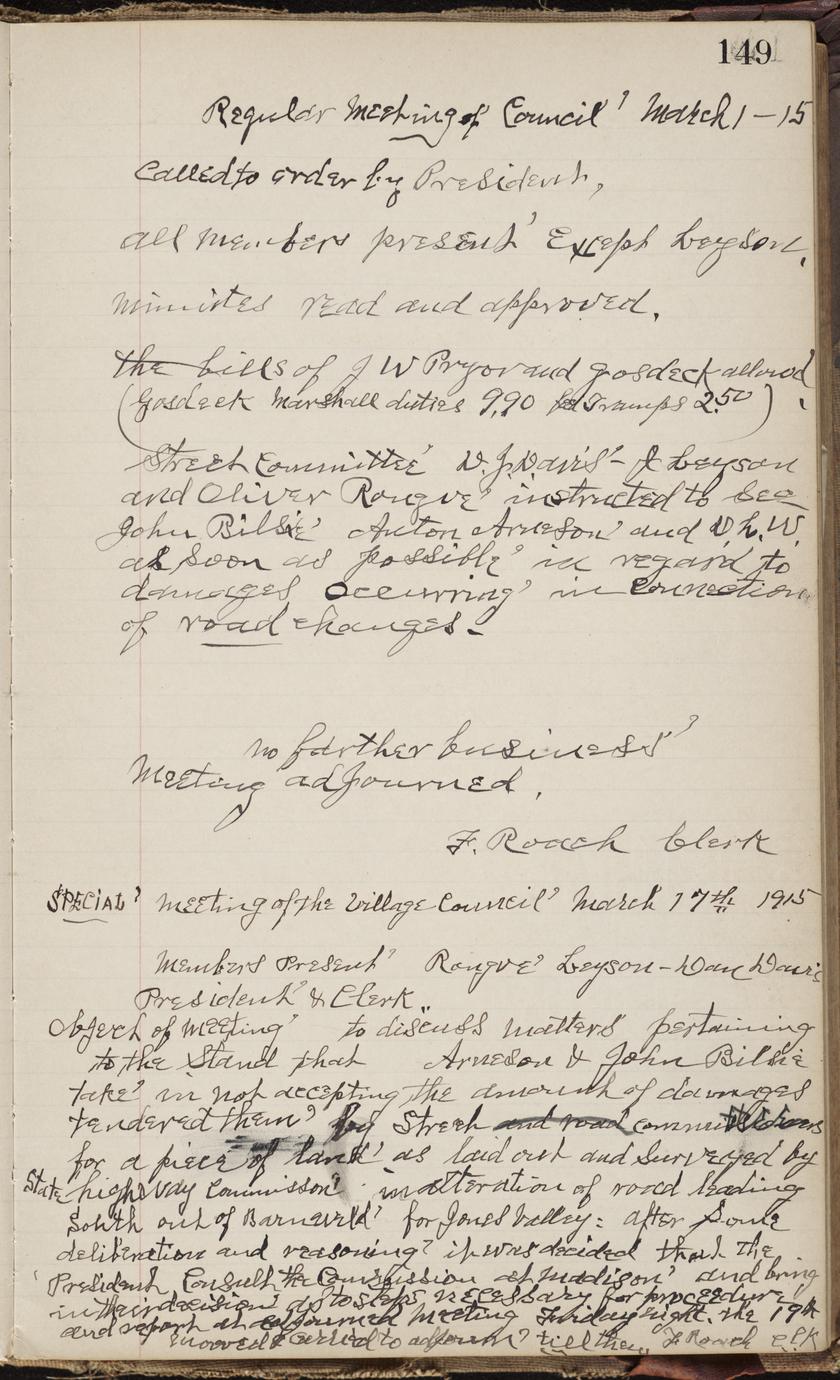 149
Regular Meeting of Council March 1 - 15
Called to order by President,
all members present Except Leyson,
minutes read and approved.
the bills of J W Pryor and Gosdeck allowed
(Gosdeck Marshall duties 9,90 Tramps 2.50)
Street Committee D. J. Davis - J Leyson
and Oliver Rongve instructed to see
John Bilsie Anton Arneson and D. L. W.
as soon as possible in regard to
damages occurring in connection
of road changes -
no further business
Meeting adjourned.
F. Roach Clerk
SPECIAL meeting of the Village Council March 17th 1915
Members Present Rongve Leyson - Dan Davis
President & Clerk
Object of Meeting to discuss matters pertaining
to the Stand that Arneson & John Bilsie
take in not accepting the amount of damages
tendered them by Street and road
for a piece of land as laid out and Surveyed by
State highway Commisson in alteration of road leading
South out of Barneveld for Jones Valley: after some
deliberation and reasoning it was decided that the
President Consult the Commission at Madison and bring
in their decision as to steps necessary for proceedure
and report at adjourned Meeting Friday night. the 19th
mooved & carried to adjourn till then F Roach clk